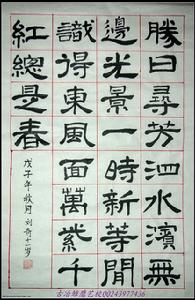 勝日尋芳泗水濱無
邊光景一時新等閒
識得東風面萬紫千
紅總是春
戊子年牧月刘奇
艺校00243977436